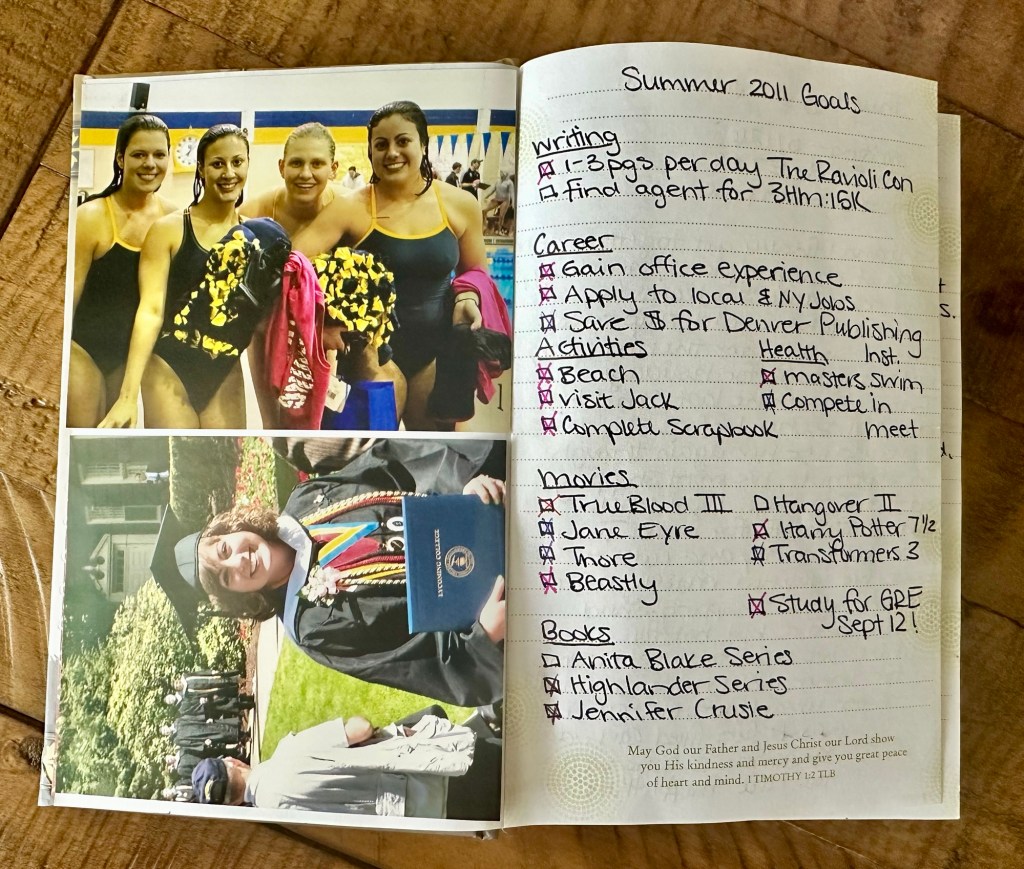 Summer 2011 Goals
writing
1-3 pgs per day The Ravioli Con
find agent for 3Hm:15K
Career
Gain office experience
Apply to local & NY Jobs
Save $ for Denver Publishing
Inst.
Activities
Beach
visit Jack
Complete Scrapbook
Health
masters swim
Compete in
meet
movies
True Blood III
Jane Eyre
Thore
Beastly
Hangover II
Harry Potter 7 1/2
Transformers 3
Study for GRE
Sept 12!
Books
Anita Blake Series
Highlander Series
Jennifer Crusie
May God our Father and Jesus Christ our Lord show
you His kindness and mercy and give you great peace
of heart and mind. 1 TIMOTHY 1:2 TLB
LYCOMING COLLEGE